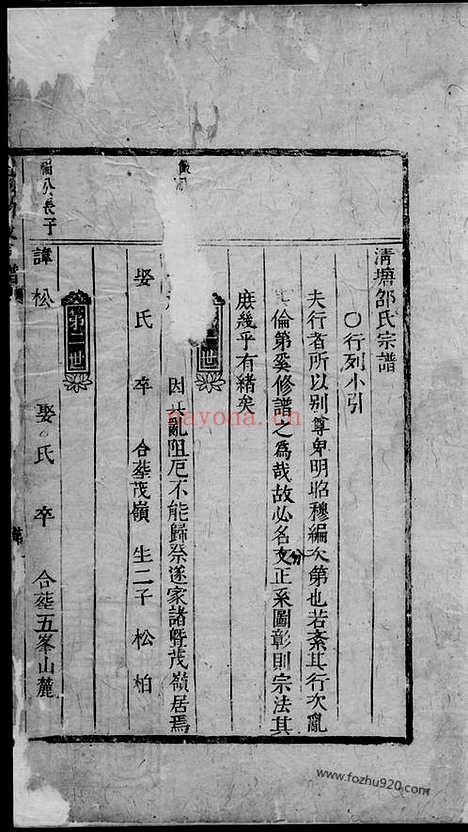 淸塘邵氏宗譜
〇行列小引
夫行者所以别尊卑明昭穆編次第也若紊其行次亂
倫第奚修譜之爲哉故必名分正系圖彰則宗法其
庶幾乎有緒矣
世
因亂阻厄不能歸祭遂家諸暨茂嶺居焉
娶氏 卒 合葬茂嶺 生二子 松 柏
第二世
公長子
諱松 娶氏 卒 合葬五峯山麓
nayona.cn
www.fozhu920.com